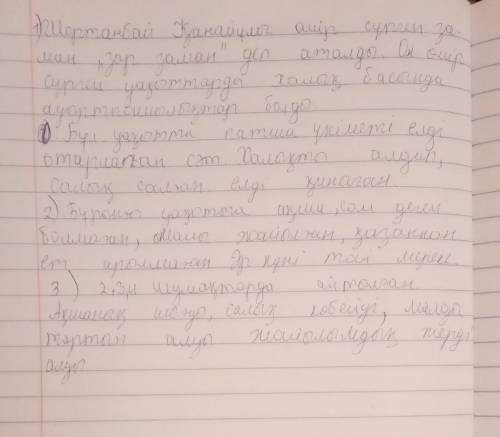 1) Шортанбай Қанайұлы өмір сүрген за-
ман „зар заман" деп аталды. Ол өмір
сүрген уақыттарда халық басында
ауыртпашылықтар болды
1) Бұл уақытта патша үкіметі елді
отарлаған сәт. Халықты алдап,
салық салған елді қинаған.
2) Бұрынғы уақытта ақша, сом деген
болмаған, Малы жайылған, қазаннан
ет арылмаған Әр күні той
3) 2,3,4 шумақтарда айтылған
Ақшаның шығуы, салық көбейді, малды
тартып алуы Жайылымдық жерді
алды